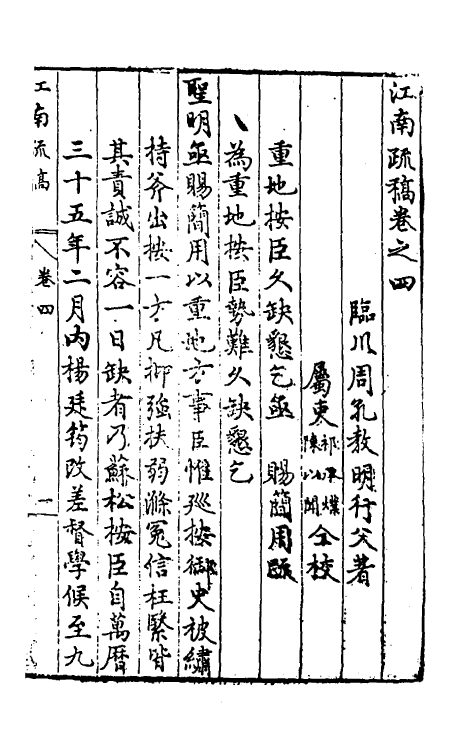 江南疏稿卷之四
臨川周孔教明行父著
屬吏祁承㸁陳以聞仝校
重地按臣久缺懇乞亟 賜簡用疏
為重地按臣勢難久缺懇乞
聖明亟賜簡用以重地方事臣惟巡按御史被繡
持斧出按一方凡抑強扶弱滌冤信枉繄皆
其責誠不容一日缺者乃蘇松按臣自萬曆
三十五年二月內楊廷筠改差督學候至九
江南疏稿 卷四 一